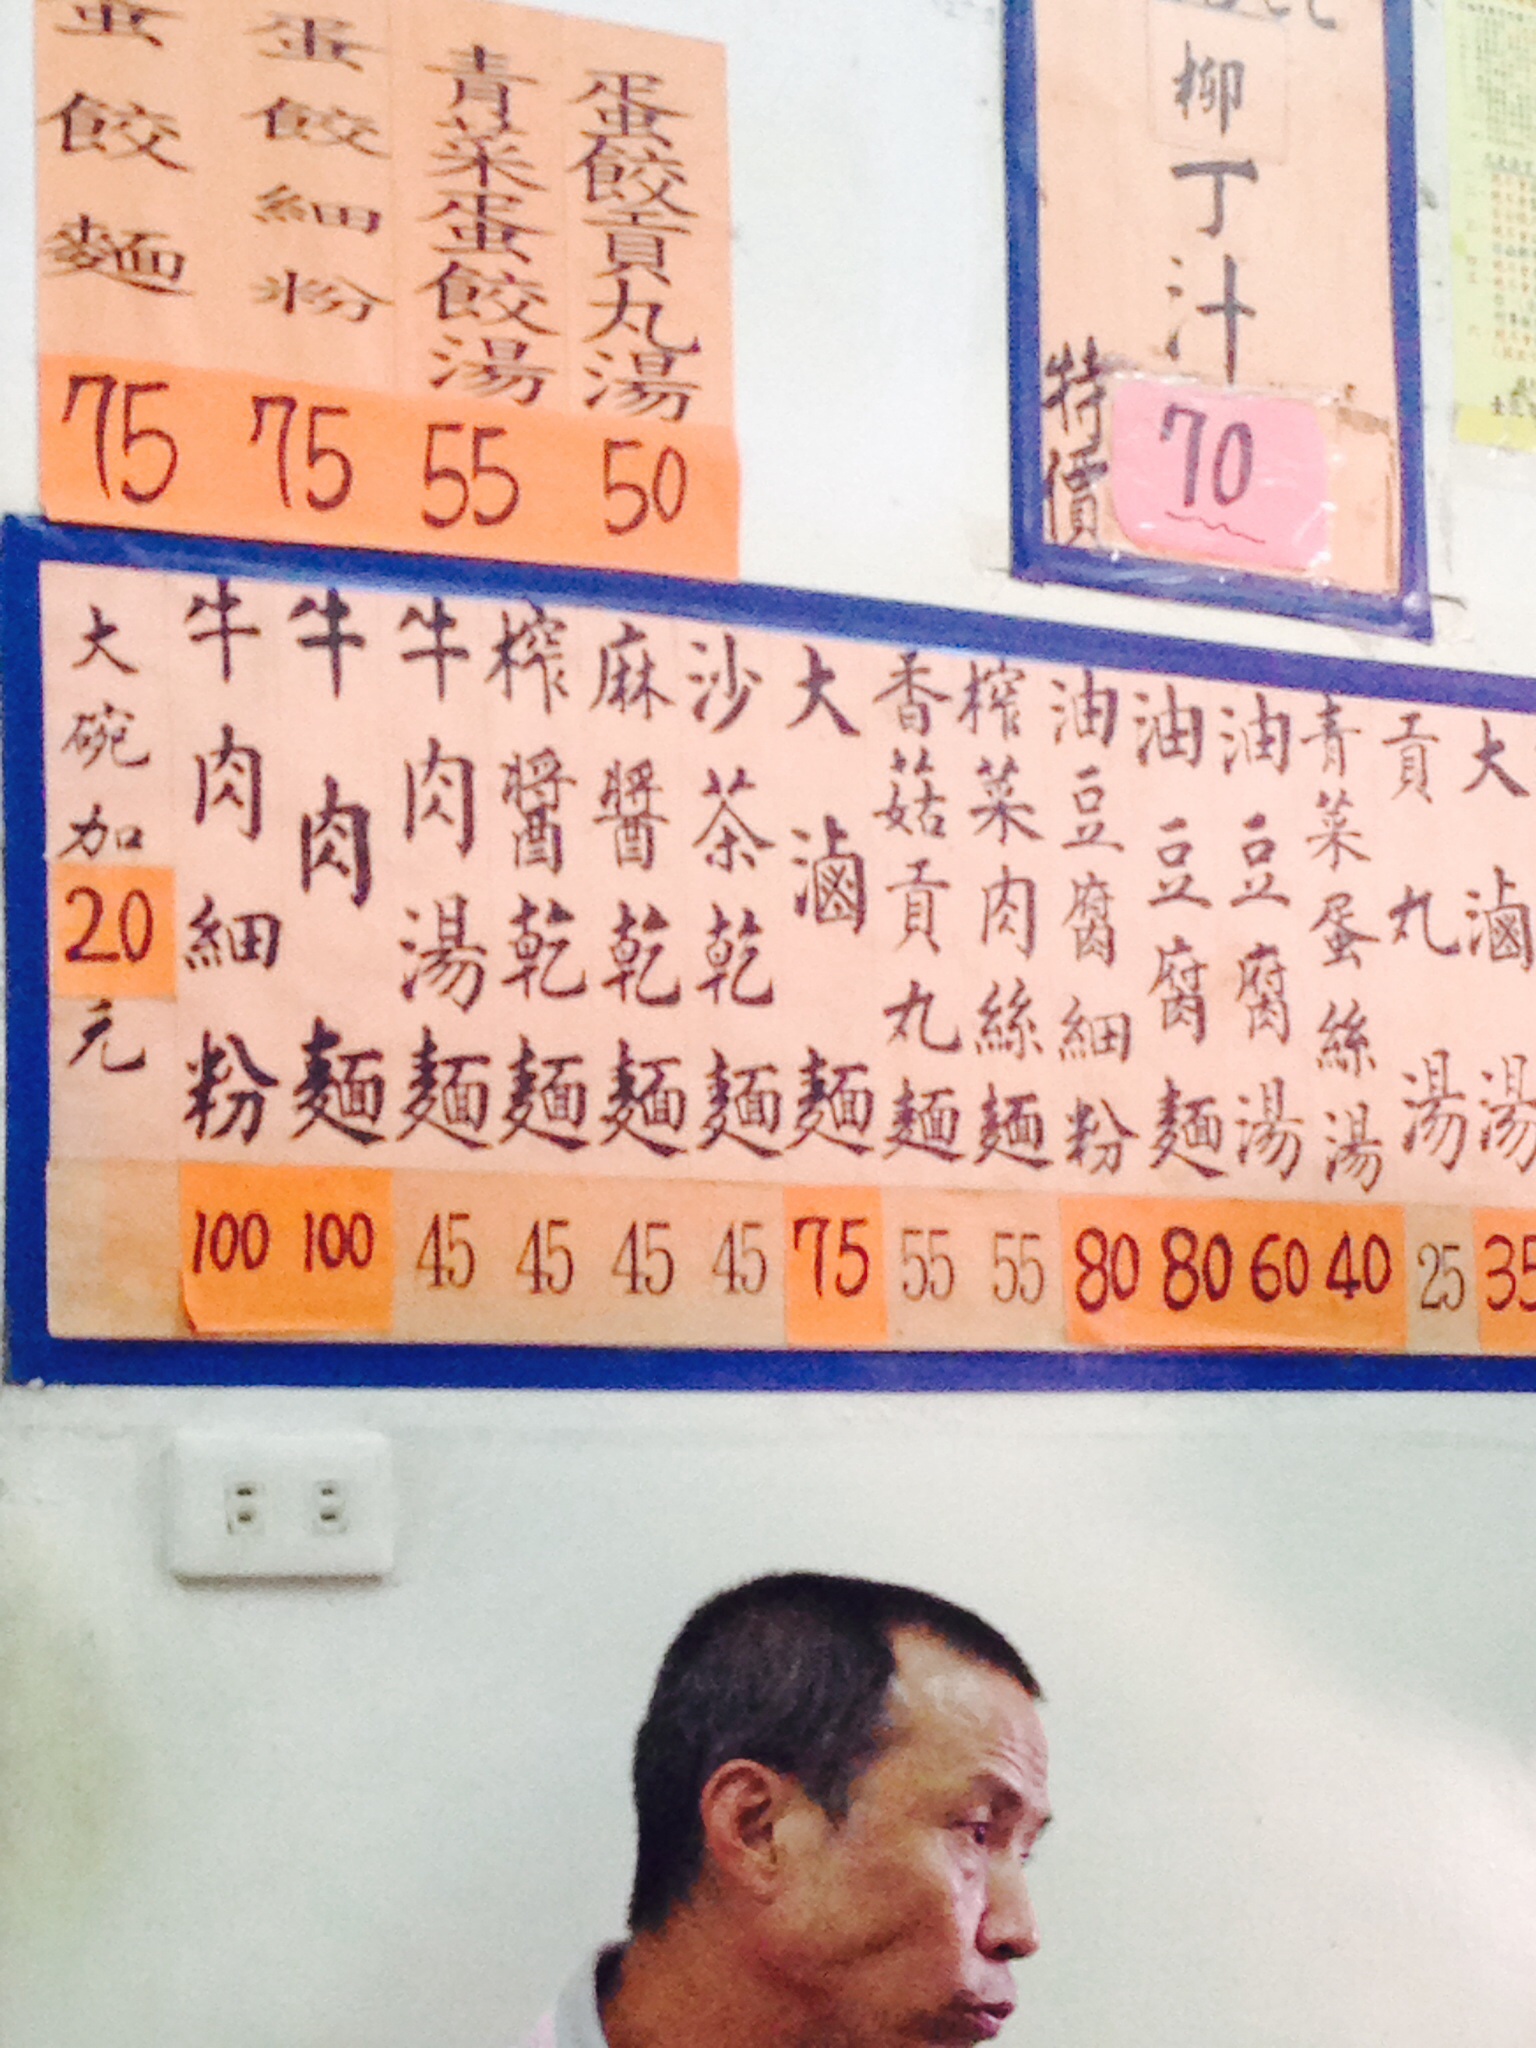 柳丁汁
特價
70
蛋餃貢丸湯 50
青菜蛋餃湯 55
蛋餃細粉 75
蛋餃麵 75
大滷湯 35
貢丸湯 25
青菜蛋絲湯 40
油豆腐湯 60
油豆腐麵 80
油豆腐細粉 80
榨菜肉絲麵 55
香菇貢丸麵 55
大滷麵 75
沙茶乾麵 45
麻醬乾麵 45
榨醬乾麵 45
牛肉湯麵 45
牛肉麵 100
牛肉細粉 100
大碗加20元